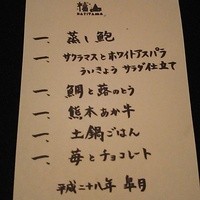 一、蒸し鮑
一、サクラマスとホワイトアスパラ
ういきょう サラダ仕立て
一、鯛と蕗のとう
一、熊本あか牛
一、土鍋ごはん
一、苺とチョコレート
平成二十八年 皐月